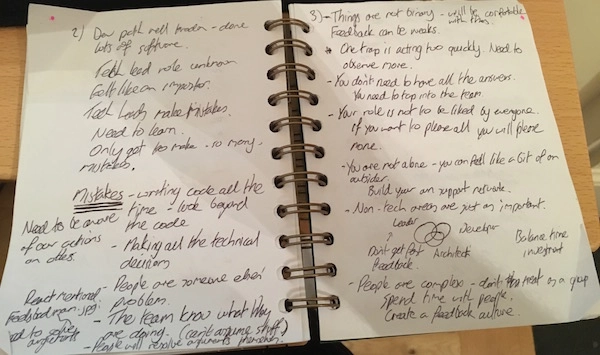 2) Dev path well trodden - done
lots of software.
Tech lead role unknown
Felt like an impostor.
Tech Leads make mistakes.
Need to learn.
Only got to make so many
mistakes.
Mistakes - writing code all the
time - look beyond
the code
Need to be aware
of our actions
on others.
- Making all the technical
decisions
- People are someone else's
problem.
- The team know what they
are doing. (can't assume stuff)
- People will resolve arguments themselves
React mentioned
Feedback
need to solve
arguments
3) - Things are not binary - will be comfortable
with this.
Feedback can take weeks.
* One trap is acting too quickly. Need to
observe more.
- You don't need to have all the answers.
You need to tap into the team.
- Your role is not to be liked by everyone.
If you want to please all you will please
none.
- You are not alone - you can feel like a bit of an
outsider.
Build your own support network.
- Non-tech areas are just as important.
Leader
Developer
Architect
?
Don't get fast
feedback.
Balance time
investment
- People are complex - don't treat as a group
Spend time with people.
Create a feedback culture.